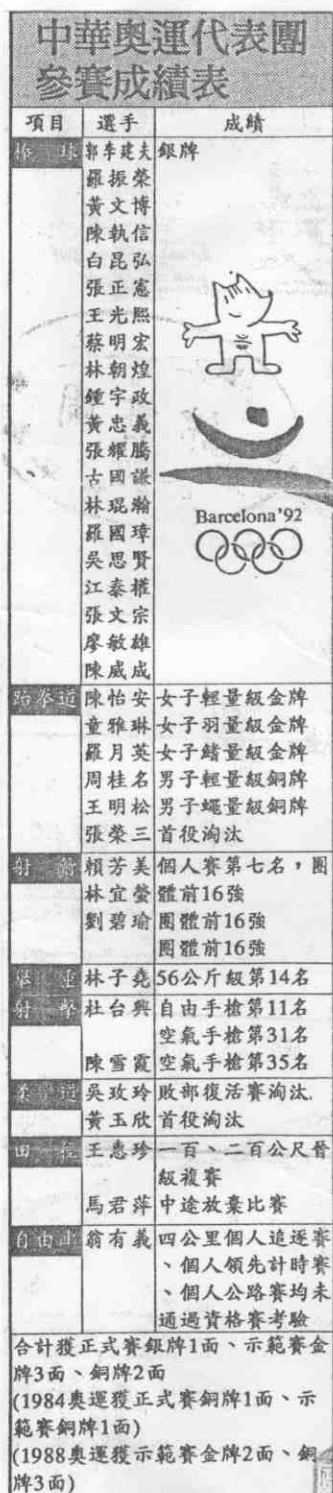 中華奧運代表團
參賽成績表
項目 選手 成績
棒球 郭李建夫 銀牌
羅振榮
黃文博
陳執信
白昆弘
張正憲
王光熙
蔡明宏
林朝煌
鍾宇政
黃忠義
張耀騰
古國謙
林琨瀚
羅國璋
吳思賢
江泰權
張文宗
廖敏雄
陳威成
Barcelona'92
跆拳道 陳怡安 女子輕量級金牌
童雅琳 女子羽量級金牌
羅月英 女子鰭量級金牌
周桂名 男子輕量級銅牌
王明松 男子蠅量級銅牌
張榮三 首役淘汰
射箭 賴芳美 個人賽第七名，團
林宜瑩 體前16強
劉碧瑜 團體前16強
團體前16強
舉重 林子堯 56公斤級第14名
射擊 杜台興 自由手槍第11名
空氣手槍第31名
陳雪霞 空氣手槍第35名
柔道 吳玫玲 敗部復活賽淘汰.
黃玉欣 首役淘汰
田徑 王惠珍 一百、二百公尺晉
級複賽
馬君萍 中途放棄比賽
自由車 翁有義 四公里個人追逐賽
、個人領先計時賽
、個人公路賽均未
通過資格賽考驗
合計獲正式賽銀牌1面、示範賽金
牌3面、銅牌2面
(1984奧運獲正式賽銅牌1面、示
範賽銅牌1面)
(1988奧運獲示範賽金牌2面、銅
牌3面)